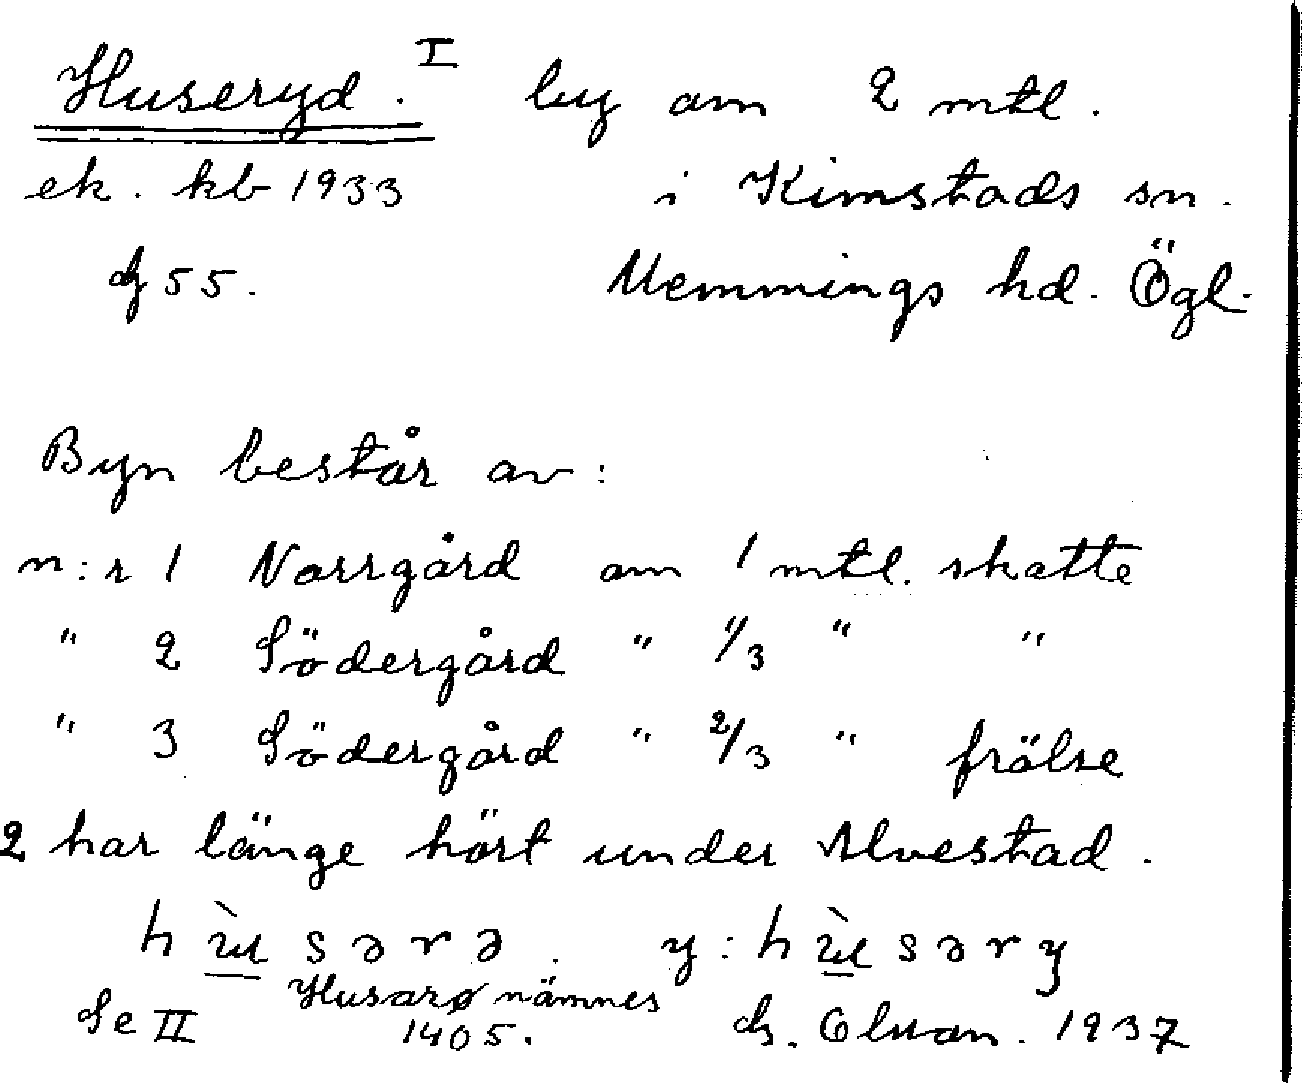 Huseryd. I by om 2 mtl.
ek. kb 1933 i Kimstads sn.
df 55. Memmings hd. Ögl.
Byn består av:
n:r 1 Norrgård om 1 mtl. skatte
" 2 Södergård " 1/3 " "
" 3 Södergård " 2/3 " frälse
2 har länge hört under Alvestad.
hùsərə. y: hùsəry
Se II Husarø nämnes
1405. Olman. 1937